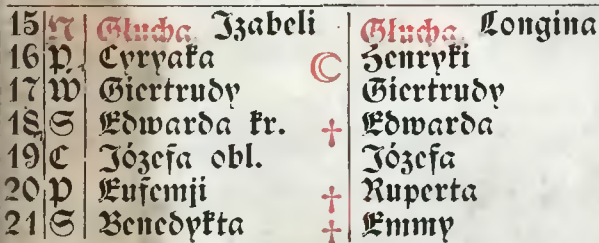 15 N Głucha Izabeli Głucha Longina
16 P Cyryaka ☾ Henryki
17 W Giertrudy Giertrudy
18 S Edwarda kr. † Edwarda
19 C Józefa obl. Józefa
20 P Eufemji † Ruperta
21 S Benedykta † Emmy